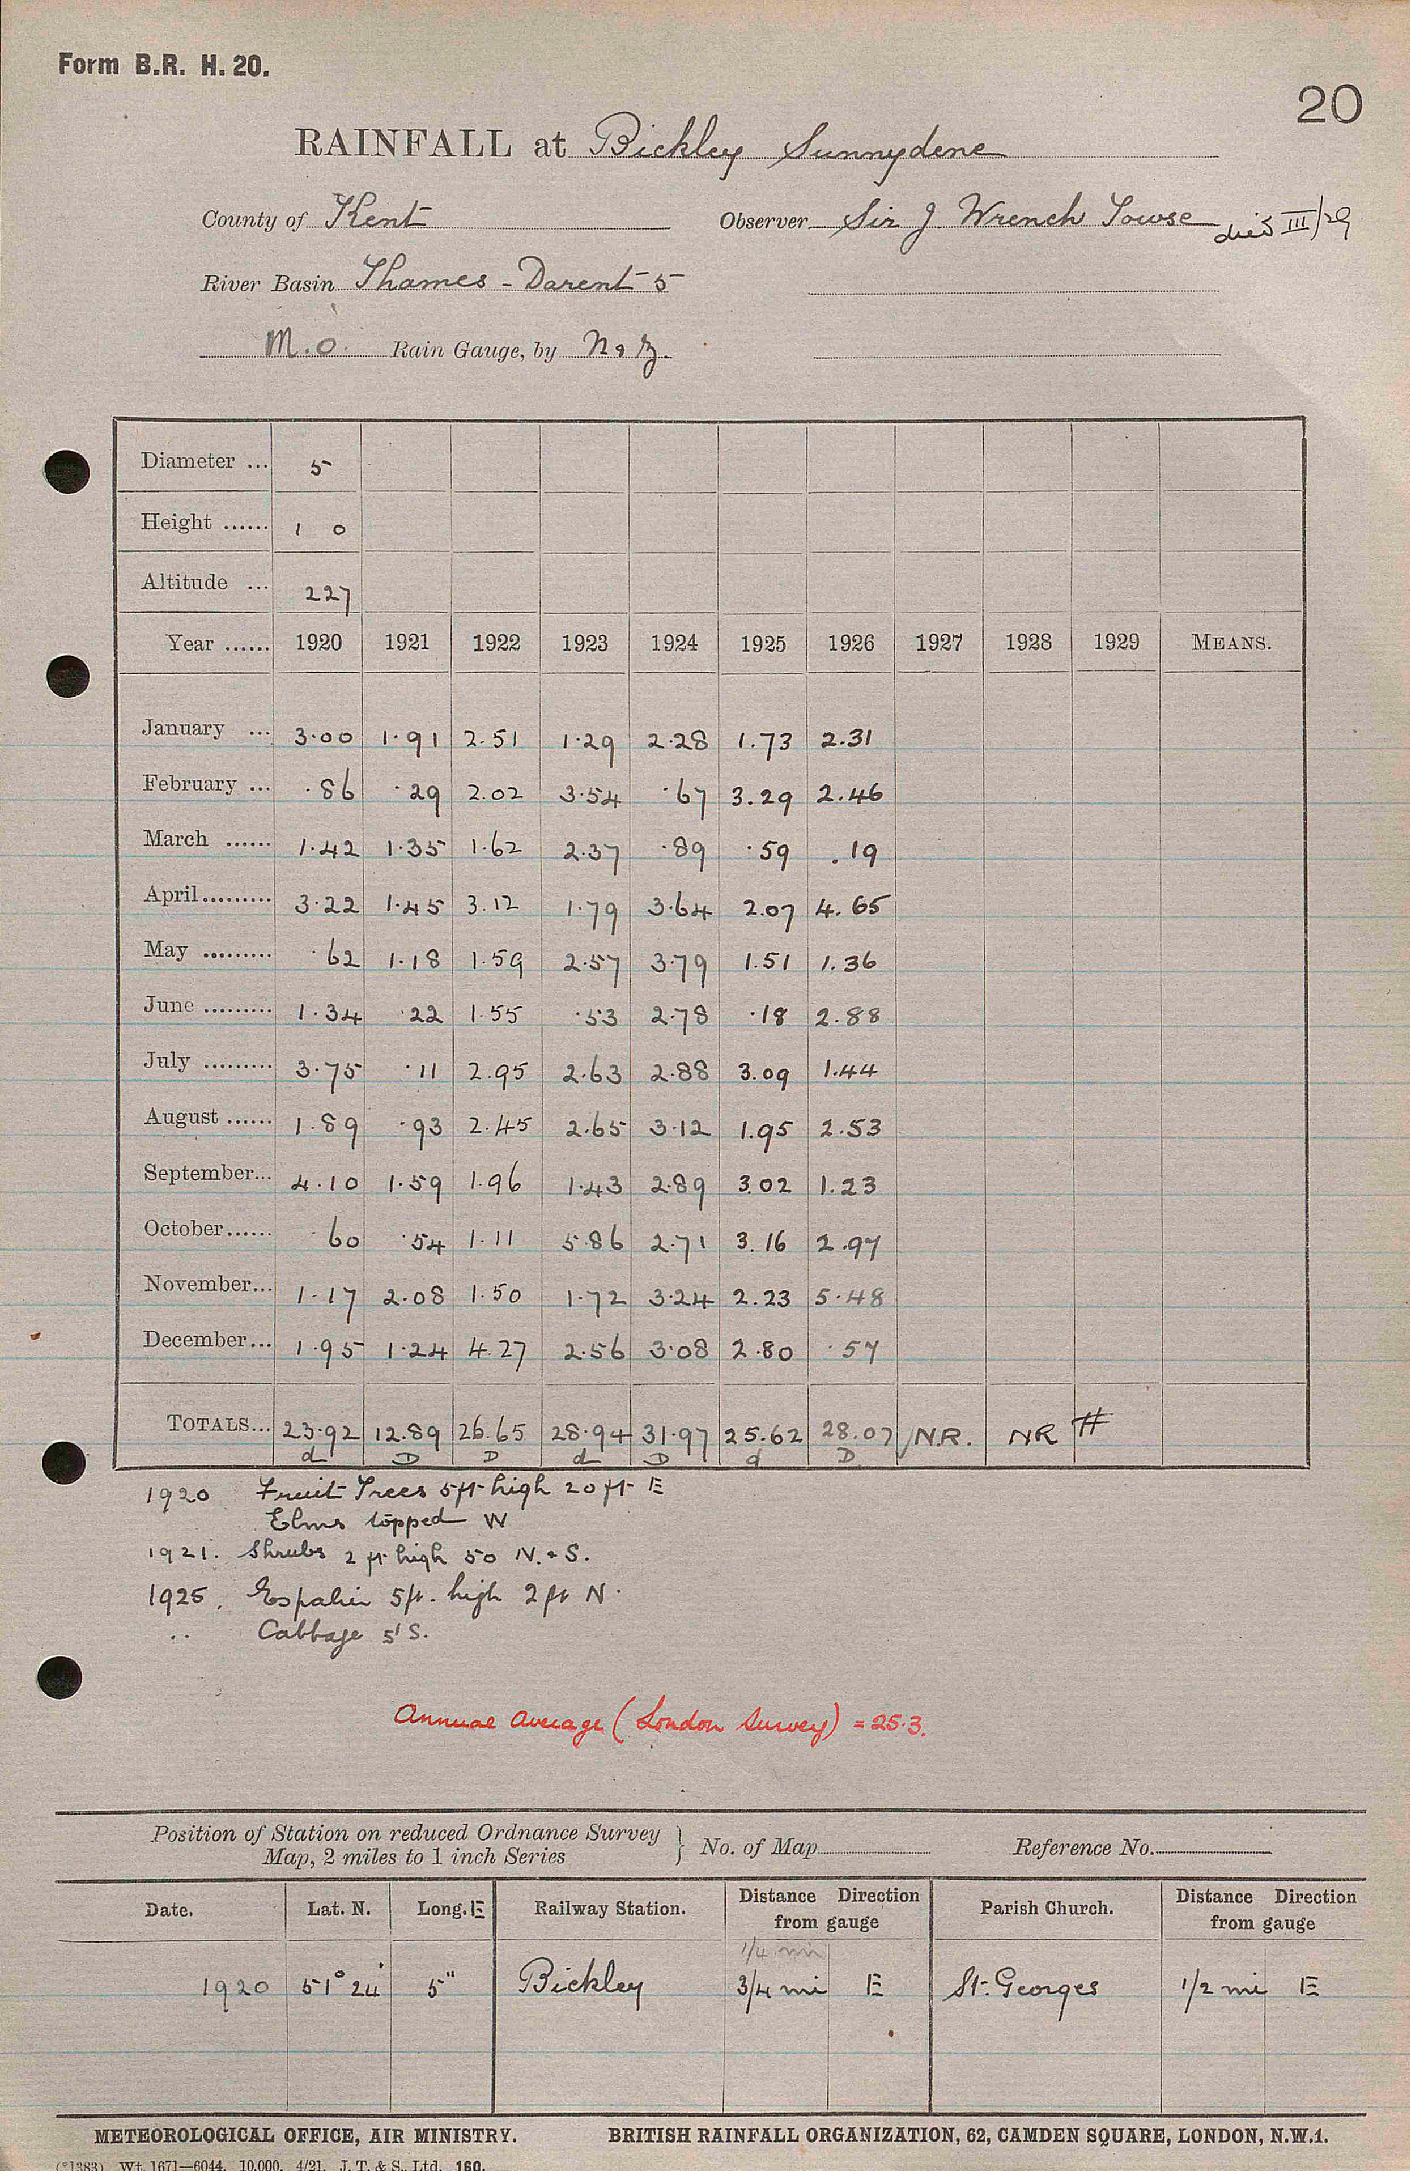 Form B.R. H. 20.
20
RAINFALL at Bickley Sunnydene
County of Kent Observer Sir J Wrench Towse died III/29
River Basin Thames - Darent 5
M.O. Rain Gauge, by N & Z.
Diameter ... 5
Height ...... 1 0
Altitude ... 227
Year ...... 1920 1921 1922 1923 1924 1925 1926 1927 1928 1929 MEANS.
January ... 3.00 1.91 2.51 1.29 2.28 1.73 2.31
February ... .86 .29 2.02 3.54 .67 3.29 2.46
March ...... 1.42 1.35 1.62 2.37 .89 .59 .19
April ......... 3.22 1.45 3.12 1.79 3.64 2.07 4.65
May ......... .62 1.18 1.59 2.57 3.79 1.51 1.36
June ......... 1.34 .22 1.55 .53 2.78 .18 2.88
July ......... 3.75 .11 2.95 2.63 2.88 3.09 1.44
August ...... 1.89 .93 2.45 2.65 3.12 1.95 2.53
September... 4.10 1.59 1.96 1.43 2.89 3.02 1.23
October...... .60 .54 1.11 5.86 2.71 3.16 2.97
November... 1.17 2.08 1.50 1.72 3.24 2.23 5.48
December... 1.95 1.24 4.27 2.56 3.08 2.80 .57
TOTALS... 23.92 12.89 26.65 28.94 31.97 25.62 28.07 N.R. NR #
d D D d D d D
1920 Fruit Trees 5ft high 20 ft E
Elms topped W
1921. Shrubs 2 ft high 50 N. & S.
1925. Espalier 5ft. high 2 ft N.
.. Cabbage 5' S.
Annual Average (London Survey) = 25.3.
Position of Station on reduced Ordnance Survey
Map, 2 miles to 1 inch Series } No. of Map Reference No.
Date. Lat. N. Long. E Railway Station. Distance Direction from gauge Parish Church. Distance Direction from gauge
1/4 mi
1920 51° 24' 5" Bickley 3/4 mi E St. Georges 1/2 mi E
METEOROLOGICAL OFFICE, AIR MINISTRY. BRITISH RAINFALL ORGANIZATION, 62, CAMDEN SQUARE, LONDON, N.W.1.
(*1383) Wt. 1671—6044. 10,000. 4/21. J. T. & S., Ltd. 160.